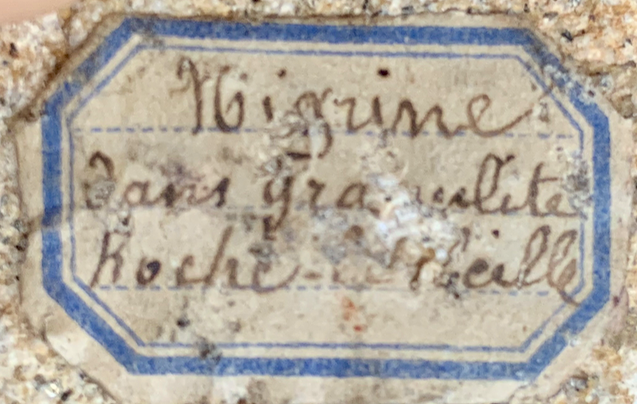 Nigrine
dans Granulite
Roche-l'Abeille